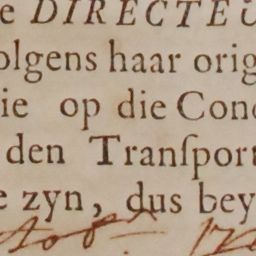 e DIRECTEU
olgens haar orig
ie op die Cond
den Tranſport
e zyn, dus bey